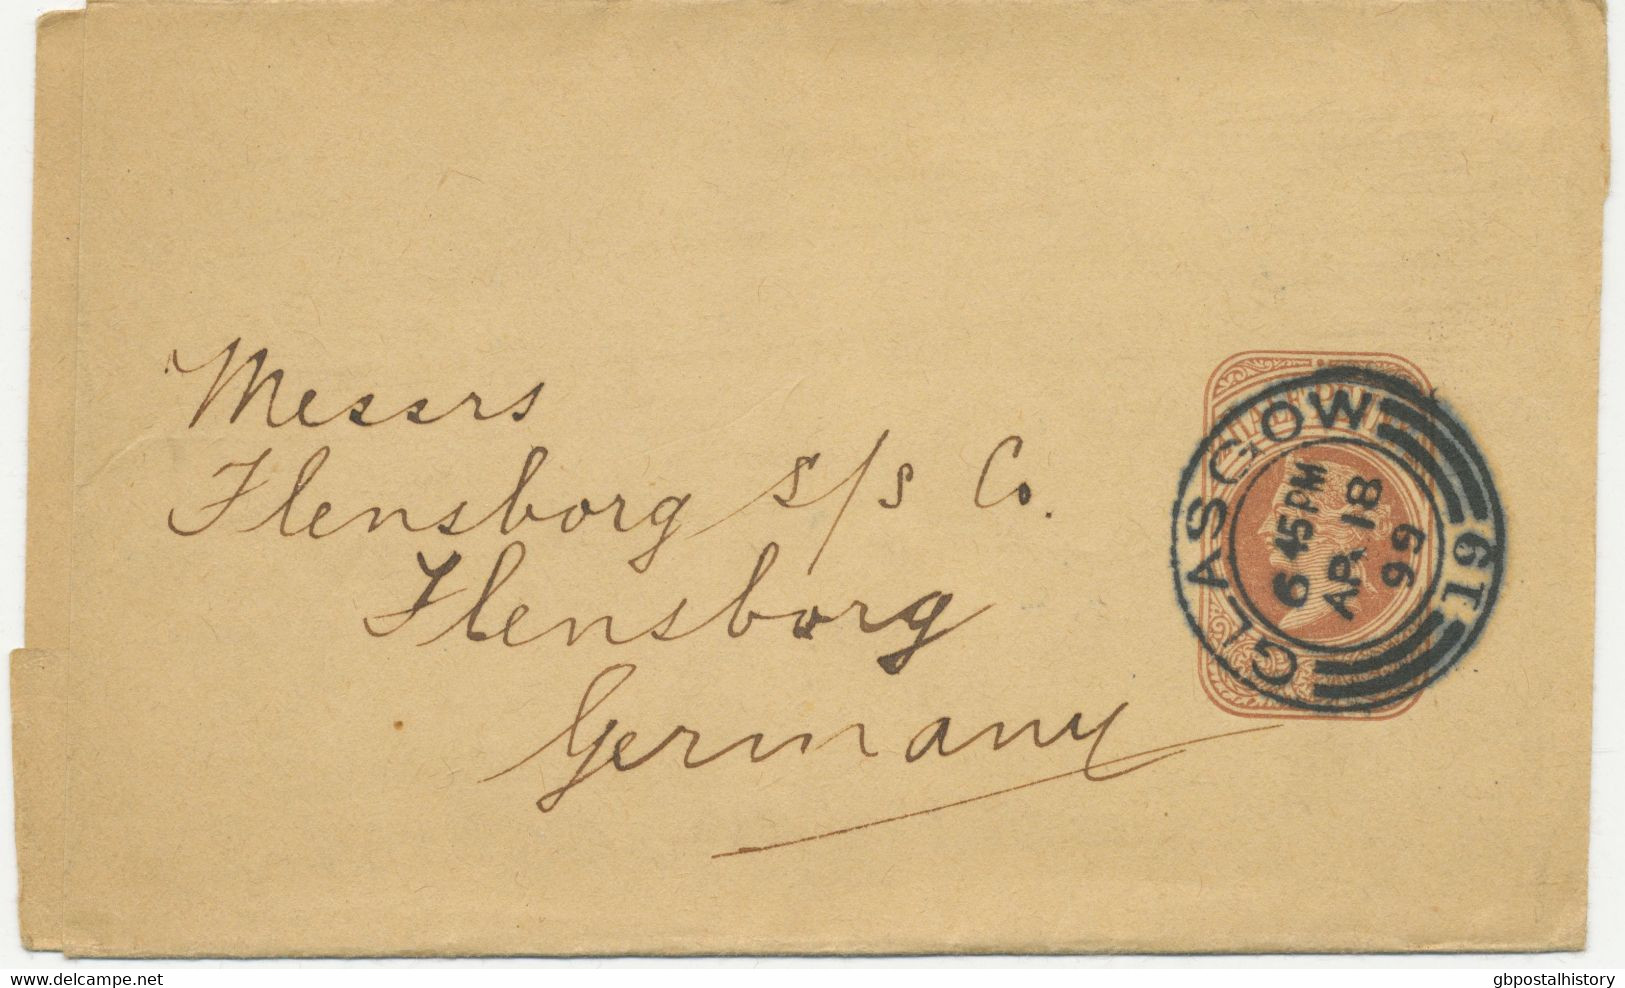 Messrs
Flensborg s/s Co.
Flensborg
Germany
HALFPENNY
GLASGOW
6 45 PM
AP 18
99
19
delcampe.net
gbpostalhistory